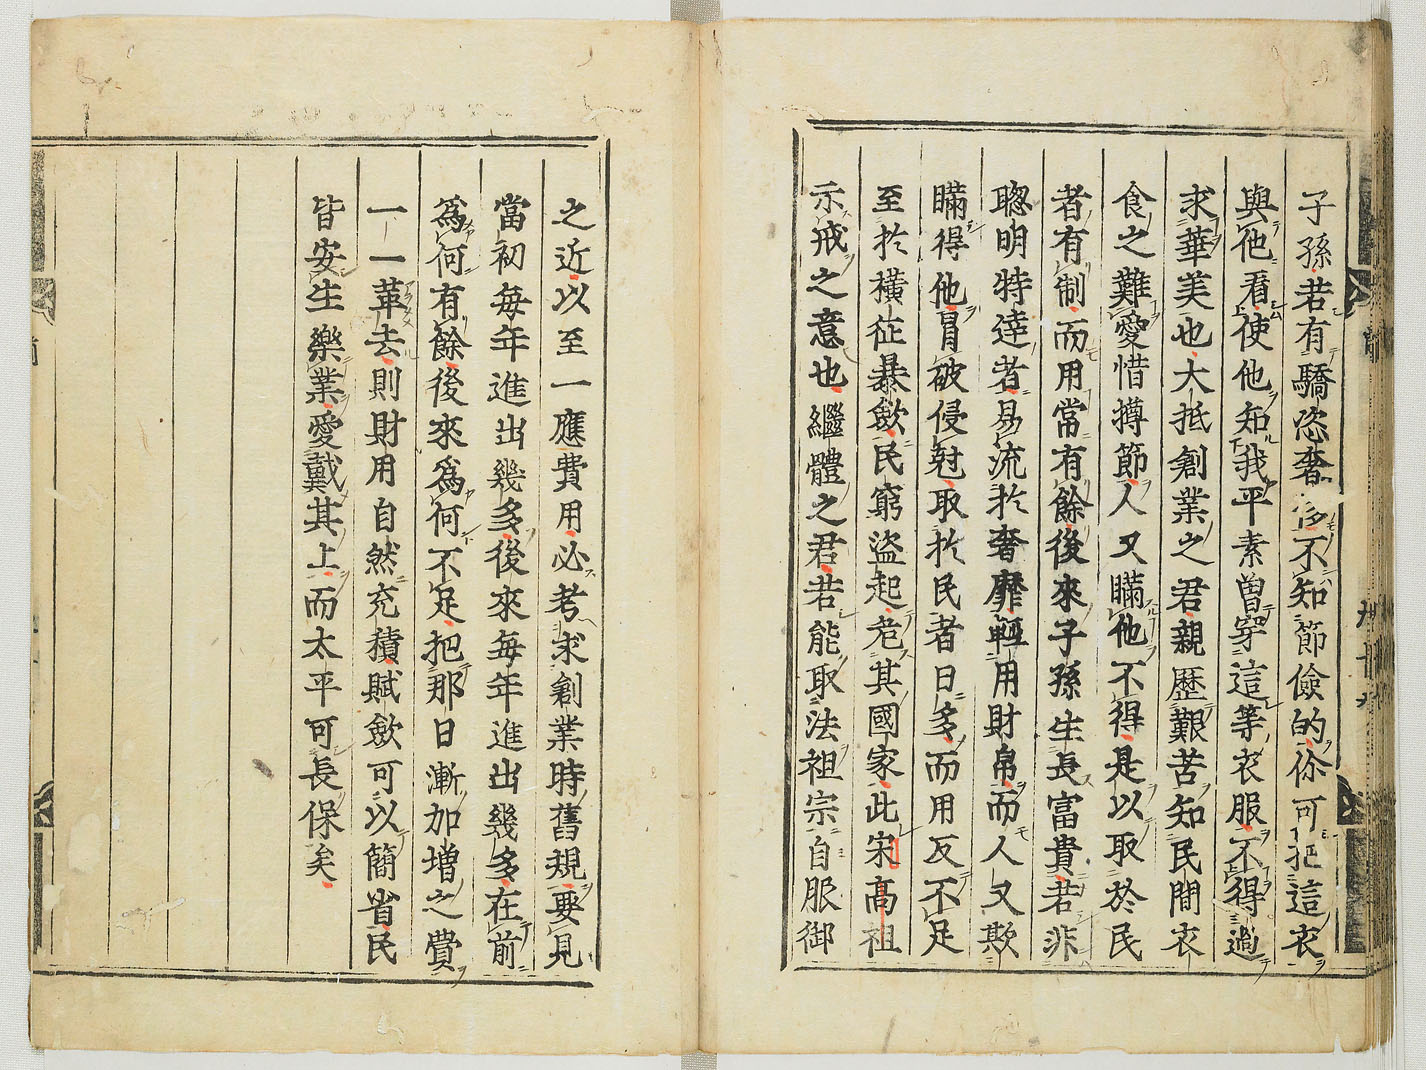 子孫若有驕恣奢侈不知節儉的你可把這衣
與他看使他知我平素曽穿這等衣服不得過
求華美也大抵創業之君親歷艱苦知民間衣
食之難愛惜撙節人又瞞他不得是以取於民
者有制而用常有餘後來子孫生長富貴若非
聦明特達者易流於奢靡輕用財帛而人又欺
瞞得他冒破侵尅取於民者日多而用反不足
至於橫征暴斂民窮盜起危其國家此宋高祖
示戒之意也繼體之君若能取法祖宗自服御
之近以至一應費用必考求創業時舊規要見
當初每年進出幾多後來每年進出幾多在前
爲何有餘後來爲何不足把那日漸加增之費
一一革去則財用自然充積賦斂可以簡省民
皆安生樂業愛戴其上而太平可長保矣